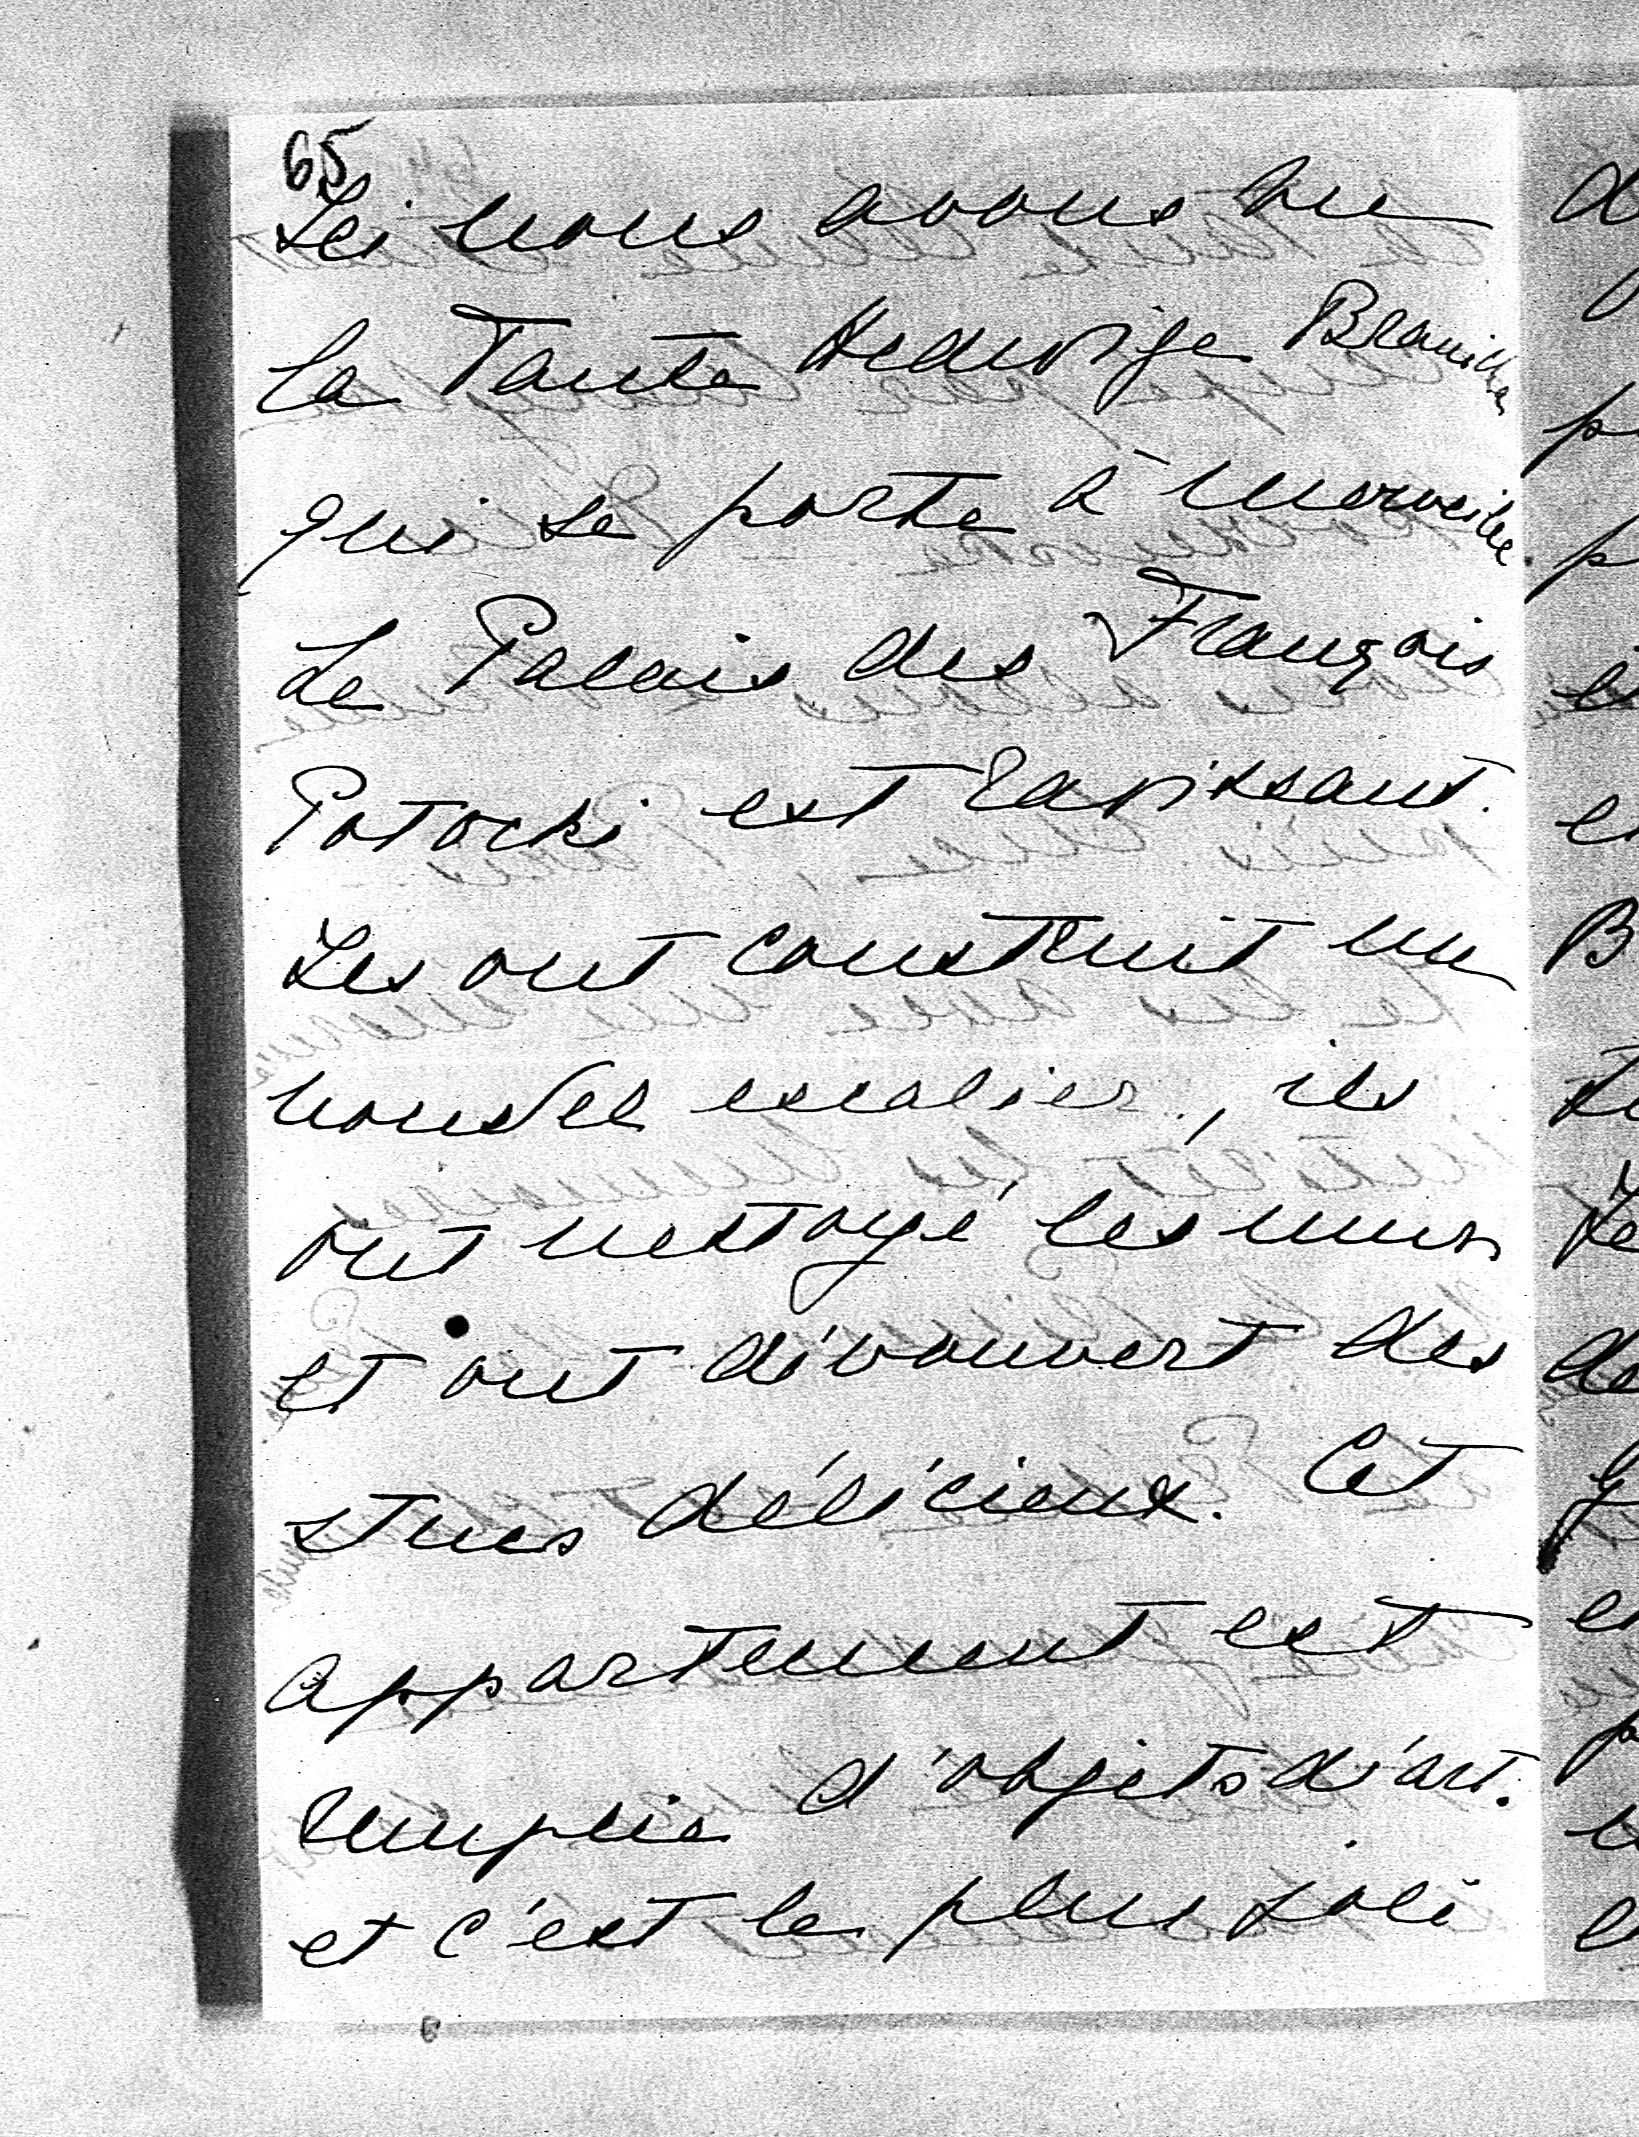 65
Ici nous avons vu
la Tante Hedwige
qui se porte à merveille.
Le Palais des François
Potocki est ravissant.
Les ont construit un
nouvel escalier, ils
ont nettoyé les murs
et ont découvert des
stucs délicieux. Cet
appartement est
remplie d'objets d'art.
et c'est le plus joli